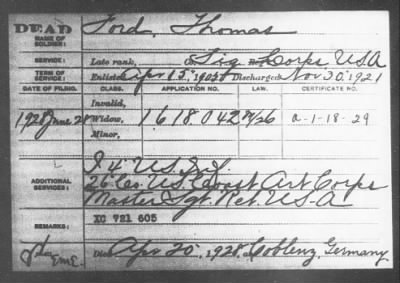 DEAD Ford, Thomas
NAME OF SOLDIER:
SERVICE: Late rank, Sig Corps USA
TERM OF SERVICE: Enlisted Apr 15, 1905 Discharged Nov 30, 1921
DATE OF FILING. CLASS. APPLICATION NO. LAW. CERTIFICATE NO.
Invalid,
1928 June 28 Widow, 1618042 M/26 a-1-18-29
Minor,
ADDITIONAL SERVICES:
26 Co. U.S. Coast Art Corps
Master Sgt Ret. U.S.A
REMARKS: XC 721 605
Died Apr 20, 1928, Coblenz, Germany